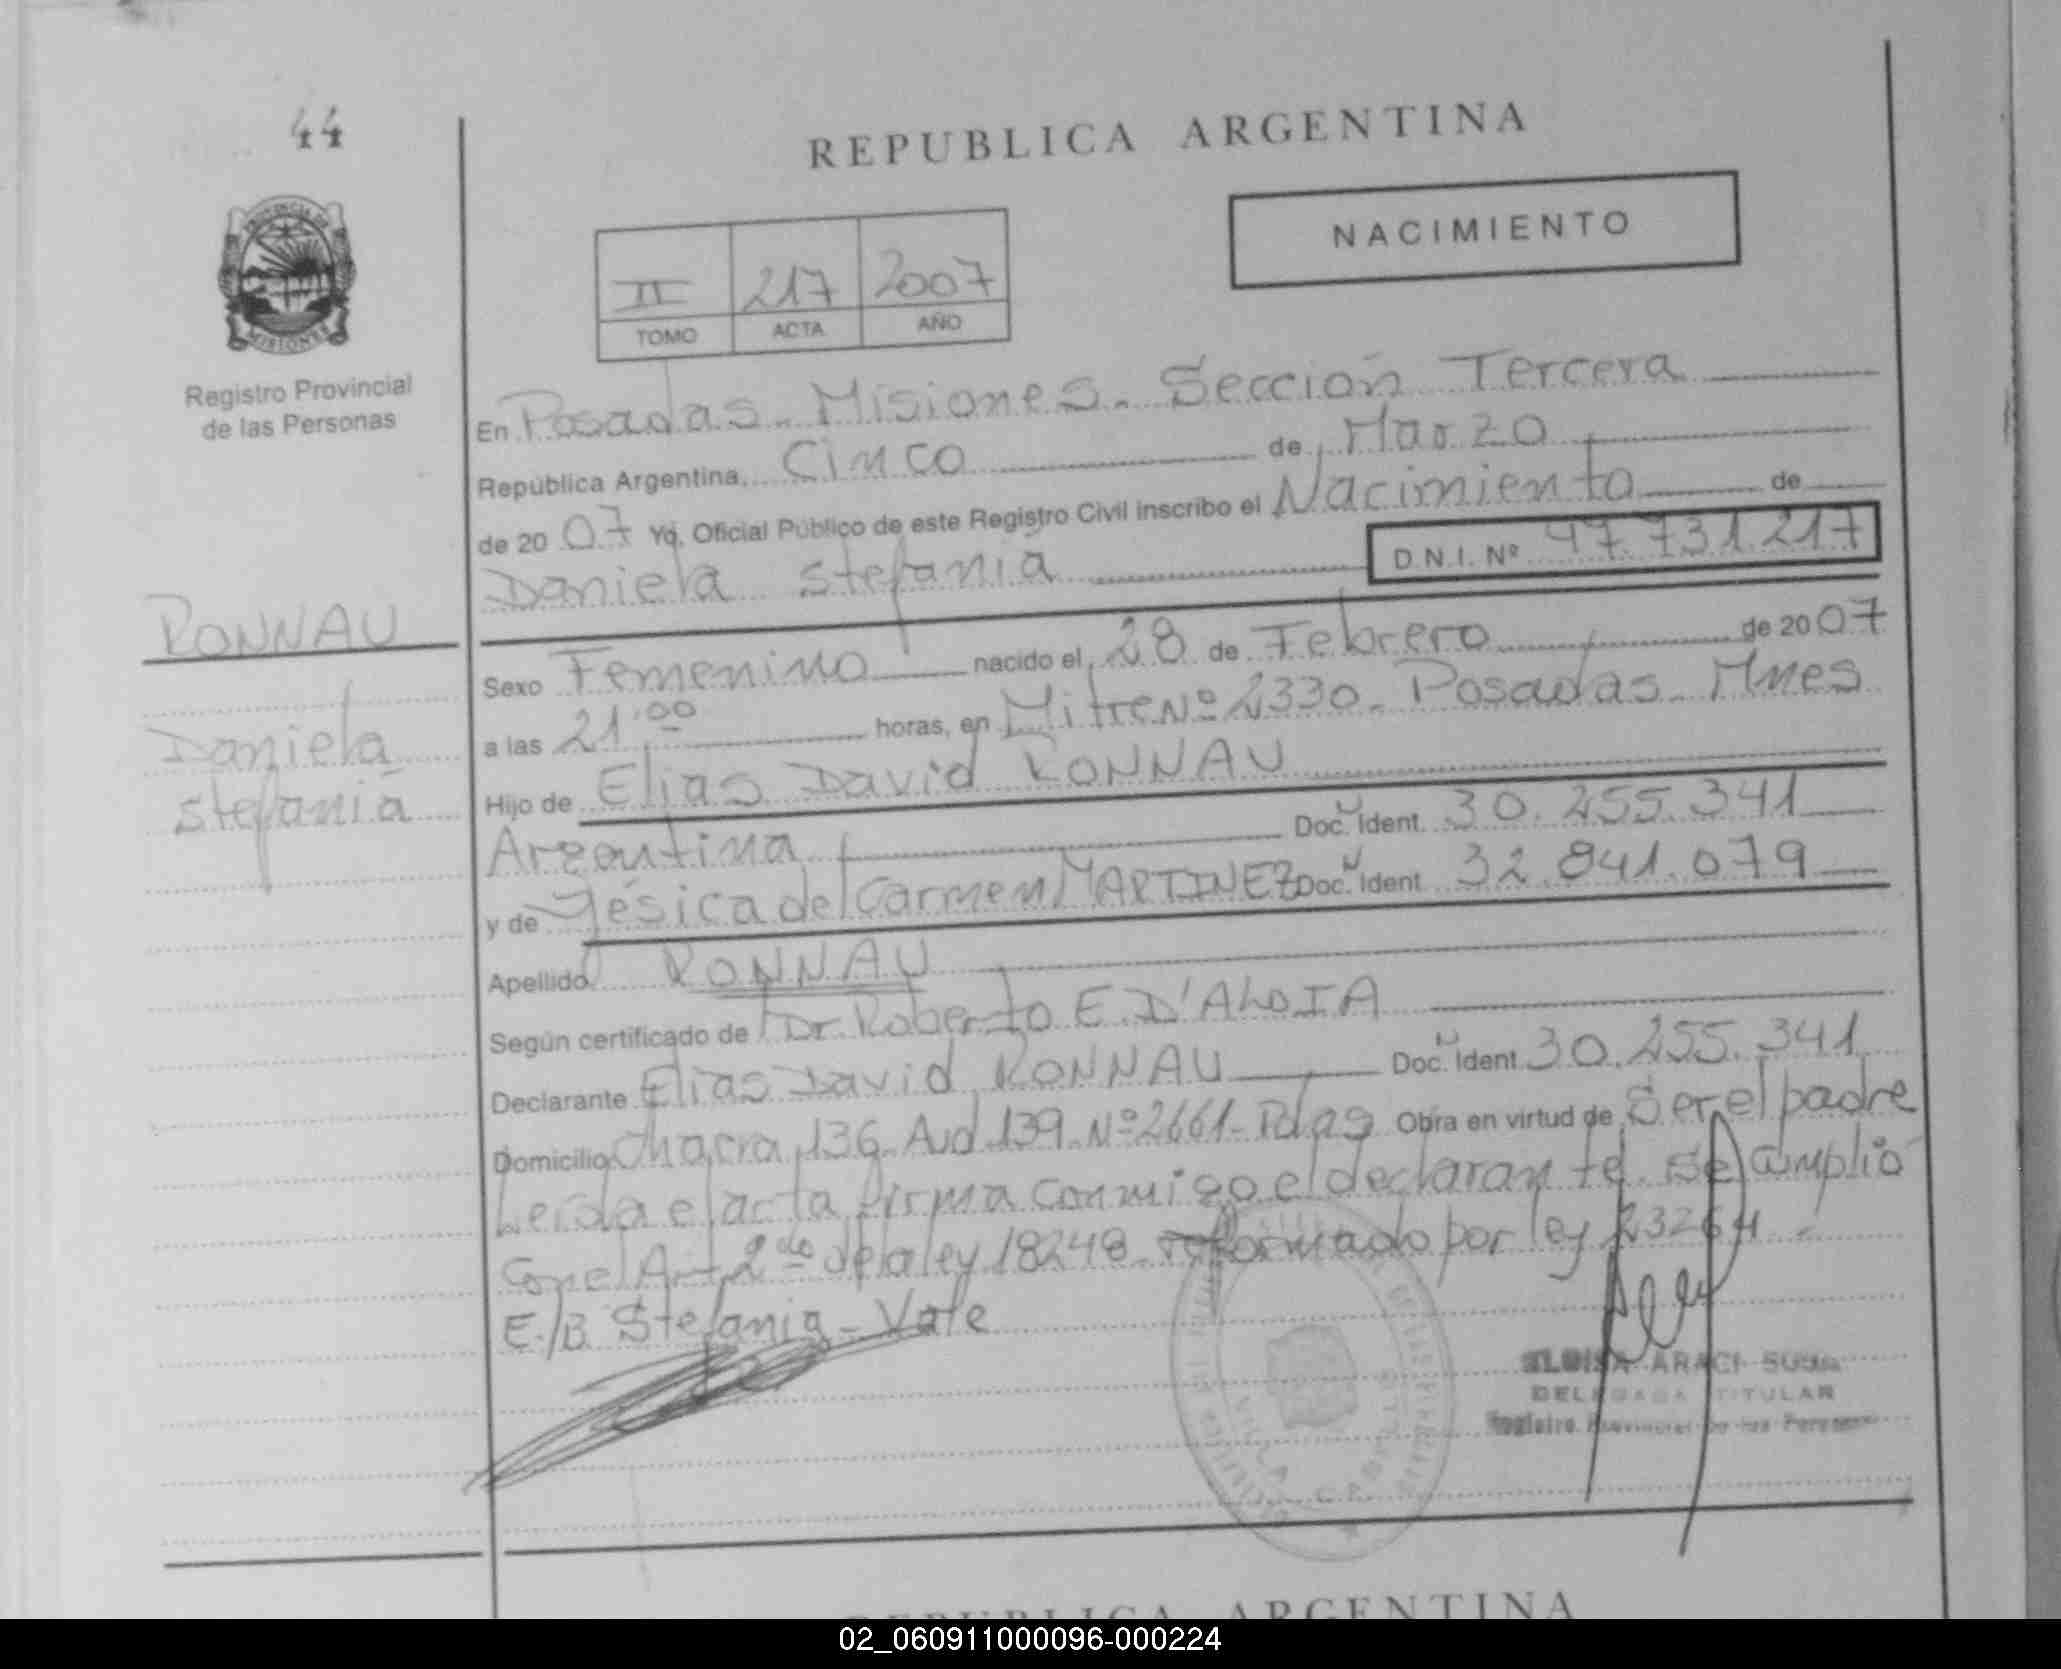 44
REPUBLICA ARGENTINA
NACIMIENTO
II 217 2007
TOMO ACTA AÑO
PROVINCIA DE
MISIONES
Registro Provincial
de las Personas
En Posadas - Misiones - Sección Tercera
República Argentina, Cinco de Marzo
de 2007 Yo, Oficial Público de este Registro Civil inscribo el Nacimiento de
Daniela Stefanía D.N.I. Nº 47.731.217
RONNAU
Sexo Femenino nacido el 28 de Febrero de 2007
a las 21:00 horas, en Mitre Nº 2330 - Posadas - Mnes
Daniela
Stefanía
Hijo de Elias David RONNAU
Argentina Doc. Ident. 30.255.341
y de Yésica del Carmen MARTINEZ Doc. Ident. 32.841.079
Apellido RONNAU
Según certificado de Dr. Roberto E. D'ALOIA
Declarante Elias David RONNAU Doc. Ident. 30.255.341
Domicilio Chacra 136 Avd 139 Nº 2661 - Pdas Obra en virtud de Ser el padre
Leída el acta firma conmigo el declarante. Se cumplió
Con el Art 2do de la ley 18248 reformado por ley 23264
E/B Stefania - Vale
DELEGADA TITULAR
Registro Provincial de las Personas
REPUBLICA ARGENTINA
02_060911000096-000224